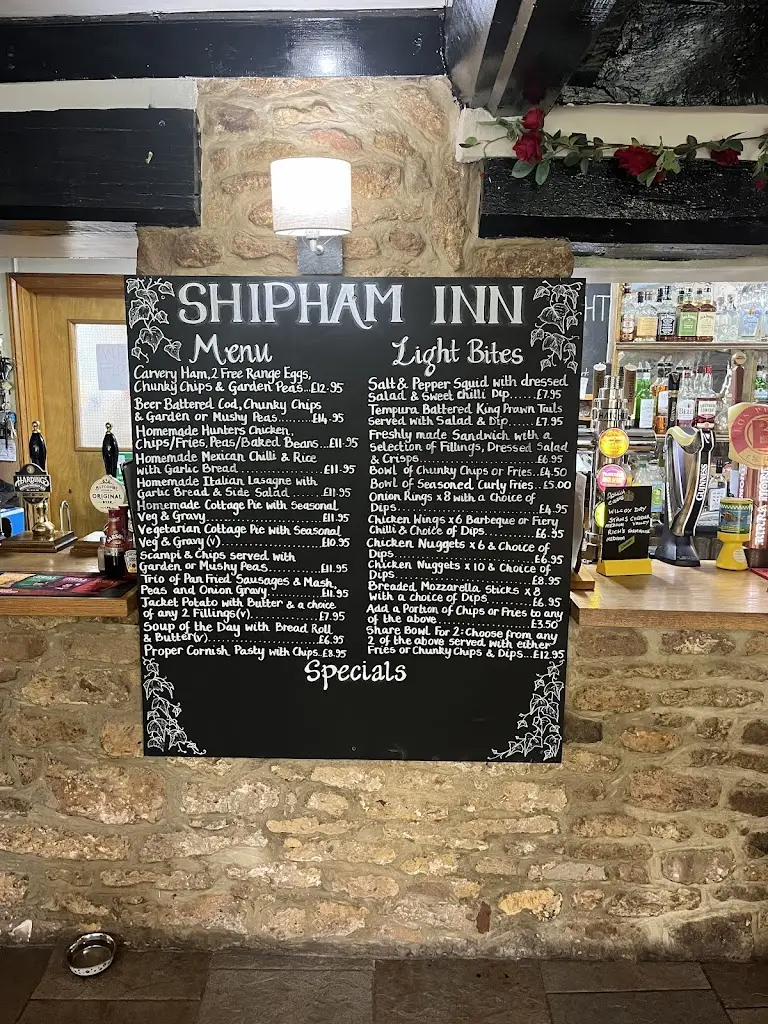 SHIPHAM INN
Menu
Carvery Ham, 2 Free Range Eggs,
Chunky Chips & Garden Peas...£12.95
Beer Battered Cod, Chunky Chips
& Garden or Mushy Peas..........£14.95
Homemade Hunters Chicken,
Chips/Fries, Peas/Baked Beans...£11.95
Homemade Mexican Chilli & Rice
with Garlic Bread....................£11.95
Homemade Italian Lasagne with
Garlic Bread & Side Salad..........£11.95
Homemade Cottage Pie with Seasonal
Veg & Gravy............................£11.95
Vegetarian Cottage Pie with Seasonal
Veg & Gravy (v)........................£10.95
Scampi & Chips served with
Garden or Mushy Peas..............£11.95
Trio of Pan Fried Sausages & Mash,
Peas and Onion Gravy..............£11.95
Jacket Potato with Butter & a choice
of any 2 Fillings(v)...................£7.95
Soup of the Day with Bread Roll
& Butter(v)..............................£6.95
Proper Cornish Pasty with Chips..£8.95
Light Bites
Salt & Pepper Squid with dressed
Salad & Sweet Chilli Dip.....£7.95
Tempura Battered King Prawn Tails
served with Salad & Dip......£7.95
Freshly made Sandwich with a
Selection of Fillings, Dressed Salad
& Crisps...........................£6.95
Bowl of Chunky Chips or Fries..£4.50
Bowl of Seasoned Curly Fries...£5.00
Onion Rings x8 with a Choice of
Dips...............................£4.95
Chicken Wings x6 Barbeque or Fiery
Chilli & Choice of Dips..........£6.95
Chicken Nuggets x 6 & Choice of
Dips...............................£6.95
Chicken Nuggets x 10 & Choice of
Dips...............................£8.95
Breaded Mozzarella Sticks x 8
With a choice of Dips............£6.95
Add a Portion of Chips or Fries to any
of the above......................£3.50
Share Bowl For 2: Choose from any
2 of the above served with either
Fries or Chunky Chips & Dips...£12.95
Specials
HARDINGS
ORIGINAL
GUINNESS
HT